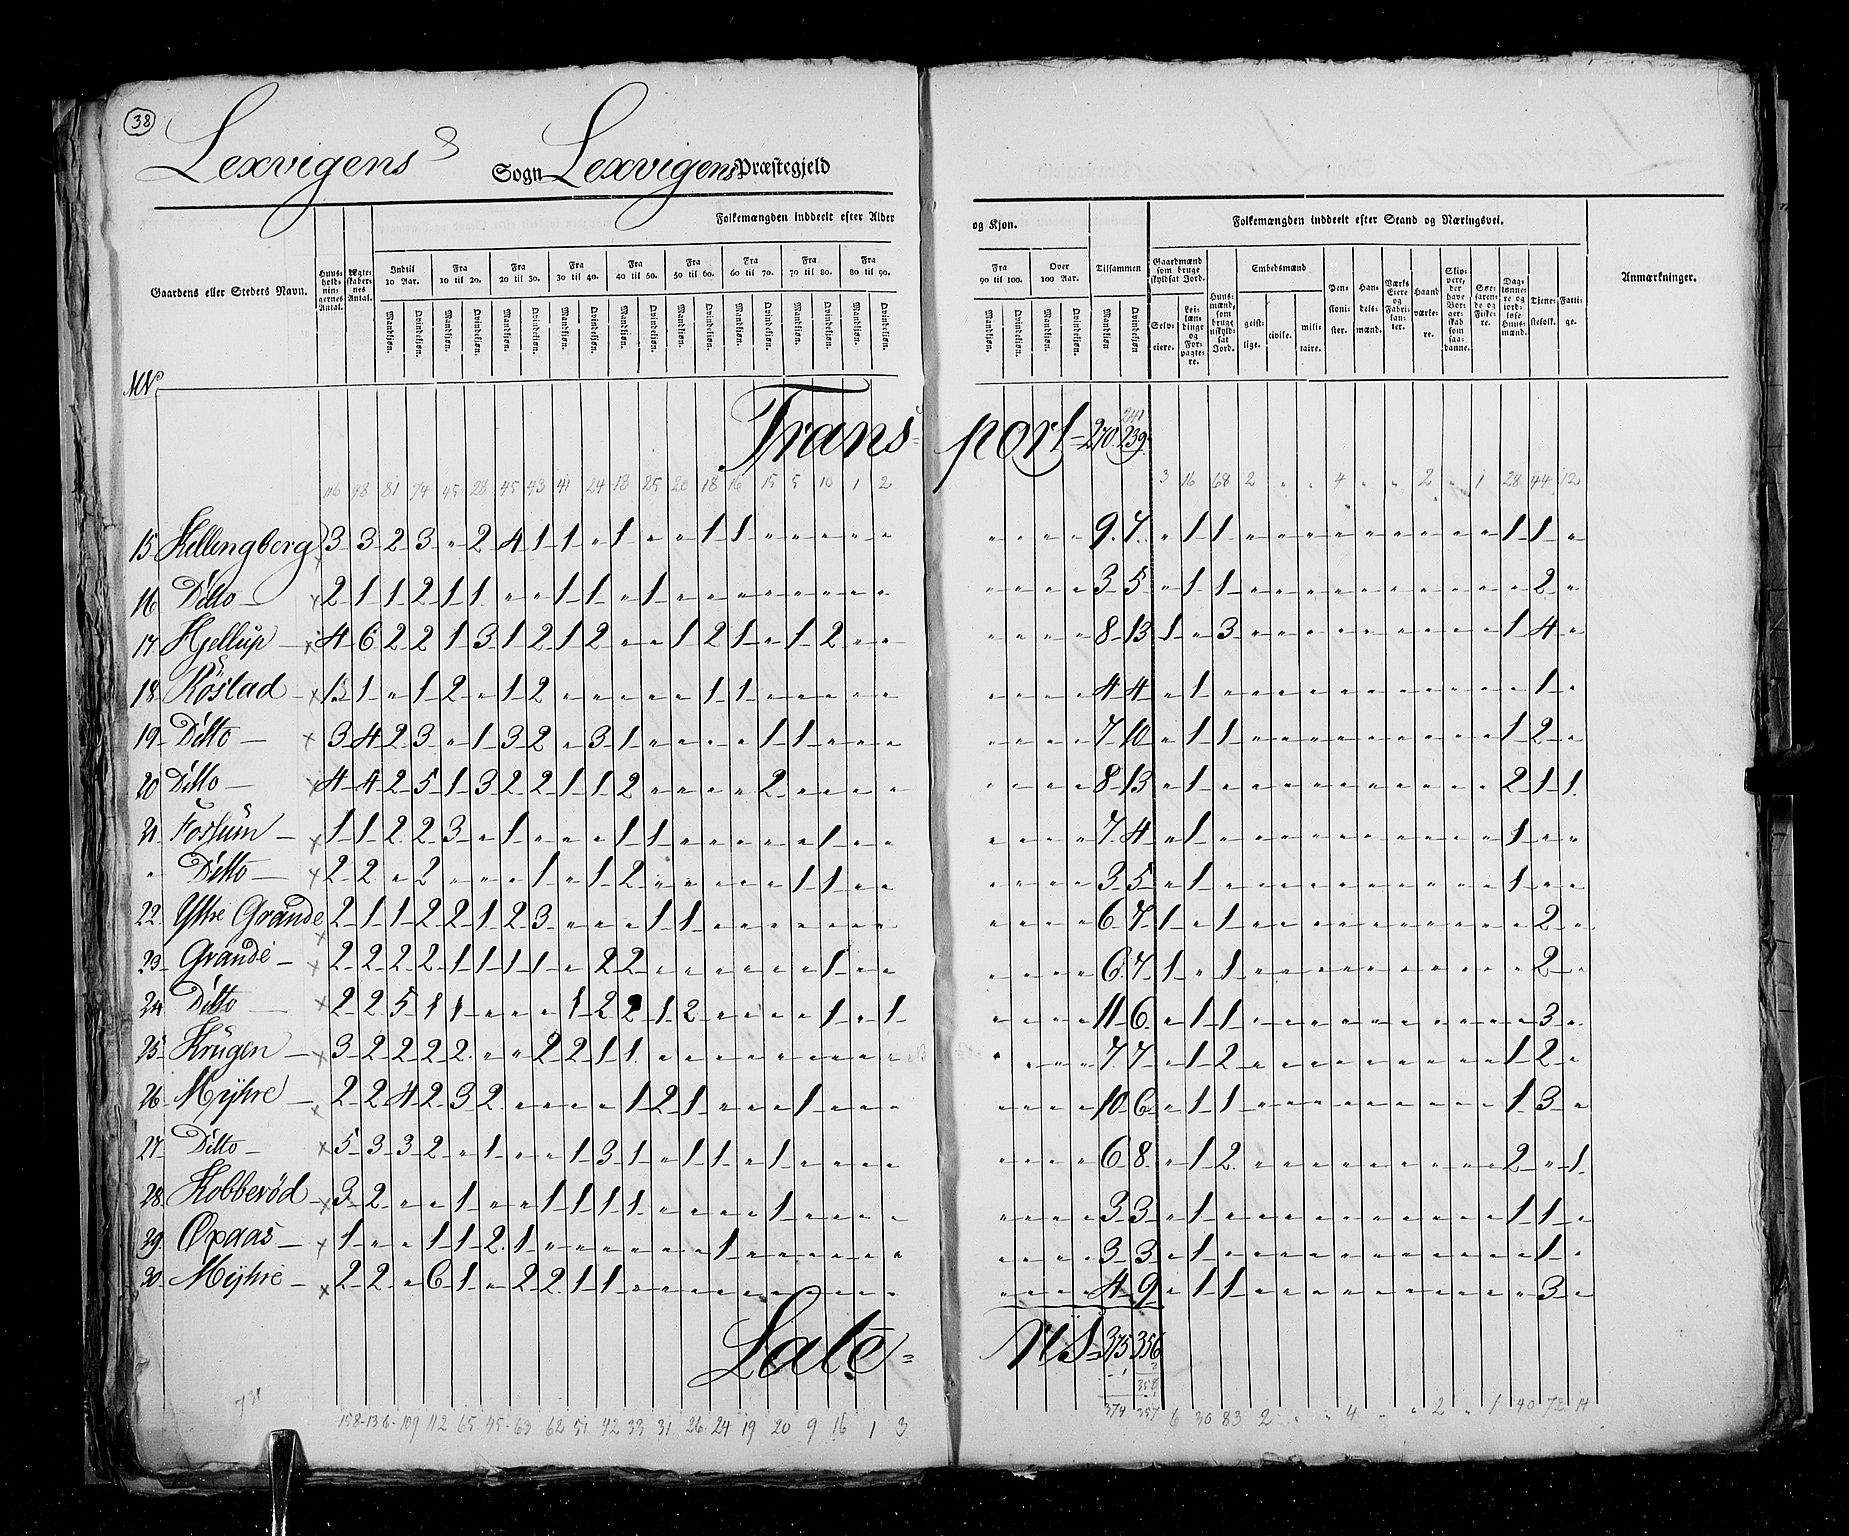 38
Lexvigens Sogn Lexvigens Præstegjeld
Gaardens eller Stedets Navn. Huus-holdnin-gernes Antal. Ægte-skaber-nes Antal. Folkemængden inddeelt efter Alder og Kjøn. Folkemængden inddeelt efter Stand og Næringsvei. Anmærkninger.
Indtil 10 Aar. Fra 10 til 20. Fra 20 til 30. Fra 30 til 40. Fra 40 til 50. Fra 50 til 60. Fra 60 til 70. Fra 70 til 80. Fra 80 til 90. Fra 90 til 100. Over 100 Aar. Tilsammen
Gaardmænd som bruge skyldsat Jord. Selv-eiere. Lei-læn-dinge og For-pagte-re. Huus-mænd, som bruge uskyld-sat Jord. Embedsmænd geist-lige. civile. mili-taire. Pen-sioni-ster. Han-dels-mænd. Værks Eiere og Fabri-kan-ter. Haand værke-re. Tjene-stefolk. Fatti-ge.
Mandkjøn. Qvindekjøn. Mandkjøn. Qvindekjøn. Mandkjøn. Qvindekjøn. Mandkjøn. Qvindekjøn. Mandkjøn. Qvindekjøn. Mandkjøn. Qvindekjøn. Mandkjøn. Qvindekjøn. Mandkjøn. Qvindekjøn. Mandkjøn. Qvindekjøn. Mandkjøn. Qvindekjøn. Mandkjøn. Qvindekjøn. Mandkjøn Qvindekjøn
Transport = 270. 239. 241
116 98 81 74 45 28 45 43 41 24 18 25 20 18 16 15 5 10 1 2 3 16 68 2 " " " 4 " " 2 " 1 28 44 12
15 Hellengberg 3 3 2 3 " 2 4 1 1 " 1 " " 1 1 " " " " " " " " " 9 7 " 1 1 " " " " " " " " " " 1 1 "
16 Ditto 2 1 1 2 1 1 " " 1 1 " 1 " " " " " " " " " " " " 3 5 " 1 1 " " " " " " " " " " " 2 "
17 Hjellup 4 6 2 2 1 3 1 2 1 2 " " 1 2 1 " 1 2 " " " " " " 8 13 1 " 3 " " " " " " " " " " 1 4 "
18 Röstad 1 1 " 1 2 " 1 2 " " " " " 1 1 " " " " " " " " " 4 4 " 1 " " " " " " " " " " " " 1 "
19 Ditto 3 4 2 3 " 1 3 2 " 3 1 " " " " 1 1 " " " " " " " 7 10 " 1 1 " " " " " " " " " " 1 2 "
20 Ditto 4 4 2 5 1 3 2 2 1 1 2 " " " " 2 " " " " " " " " 8 13 " 1 " " " " " " " " " " " 2 1 1
21 Foslum 1 1 2 2 3 " 1 " " " 1 1 " " " " " 1 " " " " " " 7 4 " 1 " " " " " " " " " " " 1 " "
" Ditto 2 2 " 2 " " " 1 " 1 2 " " " " " 1 1 " " " " " " 3 5 " 1 " " " " " " " " " " " 1 " "
22 Ystre Grande 2 1 1 2 2 1 2 3 " " " 1 1 " " " " " " " " " " " 6 7 1 " 1 " " " " " " " " " " " 2 "
23 Grande 2 2 2 2 1 1 1 1 " 2 2 " " " " " " 1 " " " " " " 6 7 1 " 1 " " " " " " " " " " " 2 "
24 Ditto 2 2 5 1 1 " " " 1 2 2 1 2 " " " " 1 " 1 " " " " 11 6 " 1 1 " " " " " " " " " " " 3 "
25 Krugen 3 2 2 2 2 " " 2 2 1 1 " " " " " " " " " " " " " 7 7 " 1 2 " " " " " " " " " " 1 2 "
26 Mÿhre 2 2 4 2 3 2 " " " " 1 2 1 " " " 1 " " " " " " " 10 6 " 1 1 " " " " " " " " " " 1 3 "
27 Ditto 5 3 3 2 " 1 " " 1 3 1 " 1 1 " 1 " " " " " " " " 6 8 " 1 2 " " " " " " " " " " 2 " 1
28 Kobberöd 3 2 " " 1 " " 1 1 1 1 " " " " 1 " " " " " " " " 3 3 " 1 " " " " " " " " " " " 1 1 "
29 Opaas 1 " " 1 1 2 1 " " " " " " 1 " " " " " " " " " " 3 3 " 1 " " " " " " " " " " " " 1 "
30 Mÿhre 2 2 " 6 1 " 2 2 1 1 " " " " " " " " " " " " " " 4 9 " 1 1 " " " " " " " " " " " 3 "
Late = 375 356
2
358
1
374 357
731
158 136 109 112 65 45 63 62 51 42 33 31 26 24 19 20 9 16 1 3 6 30 83 2 " " " 4 " " 2 " 1 40 72 14